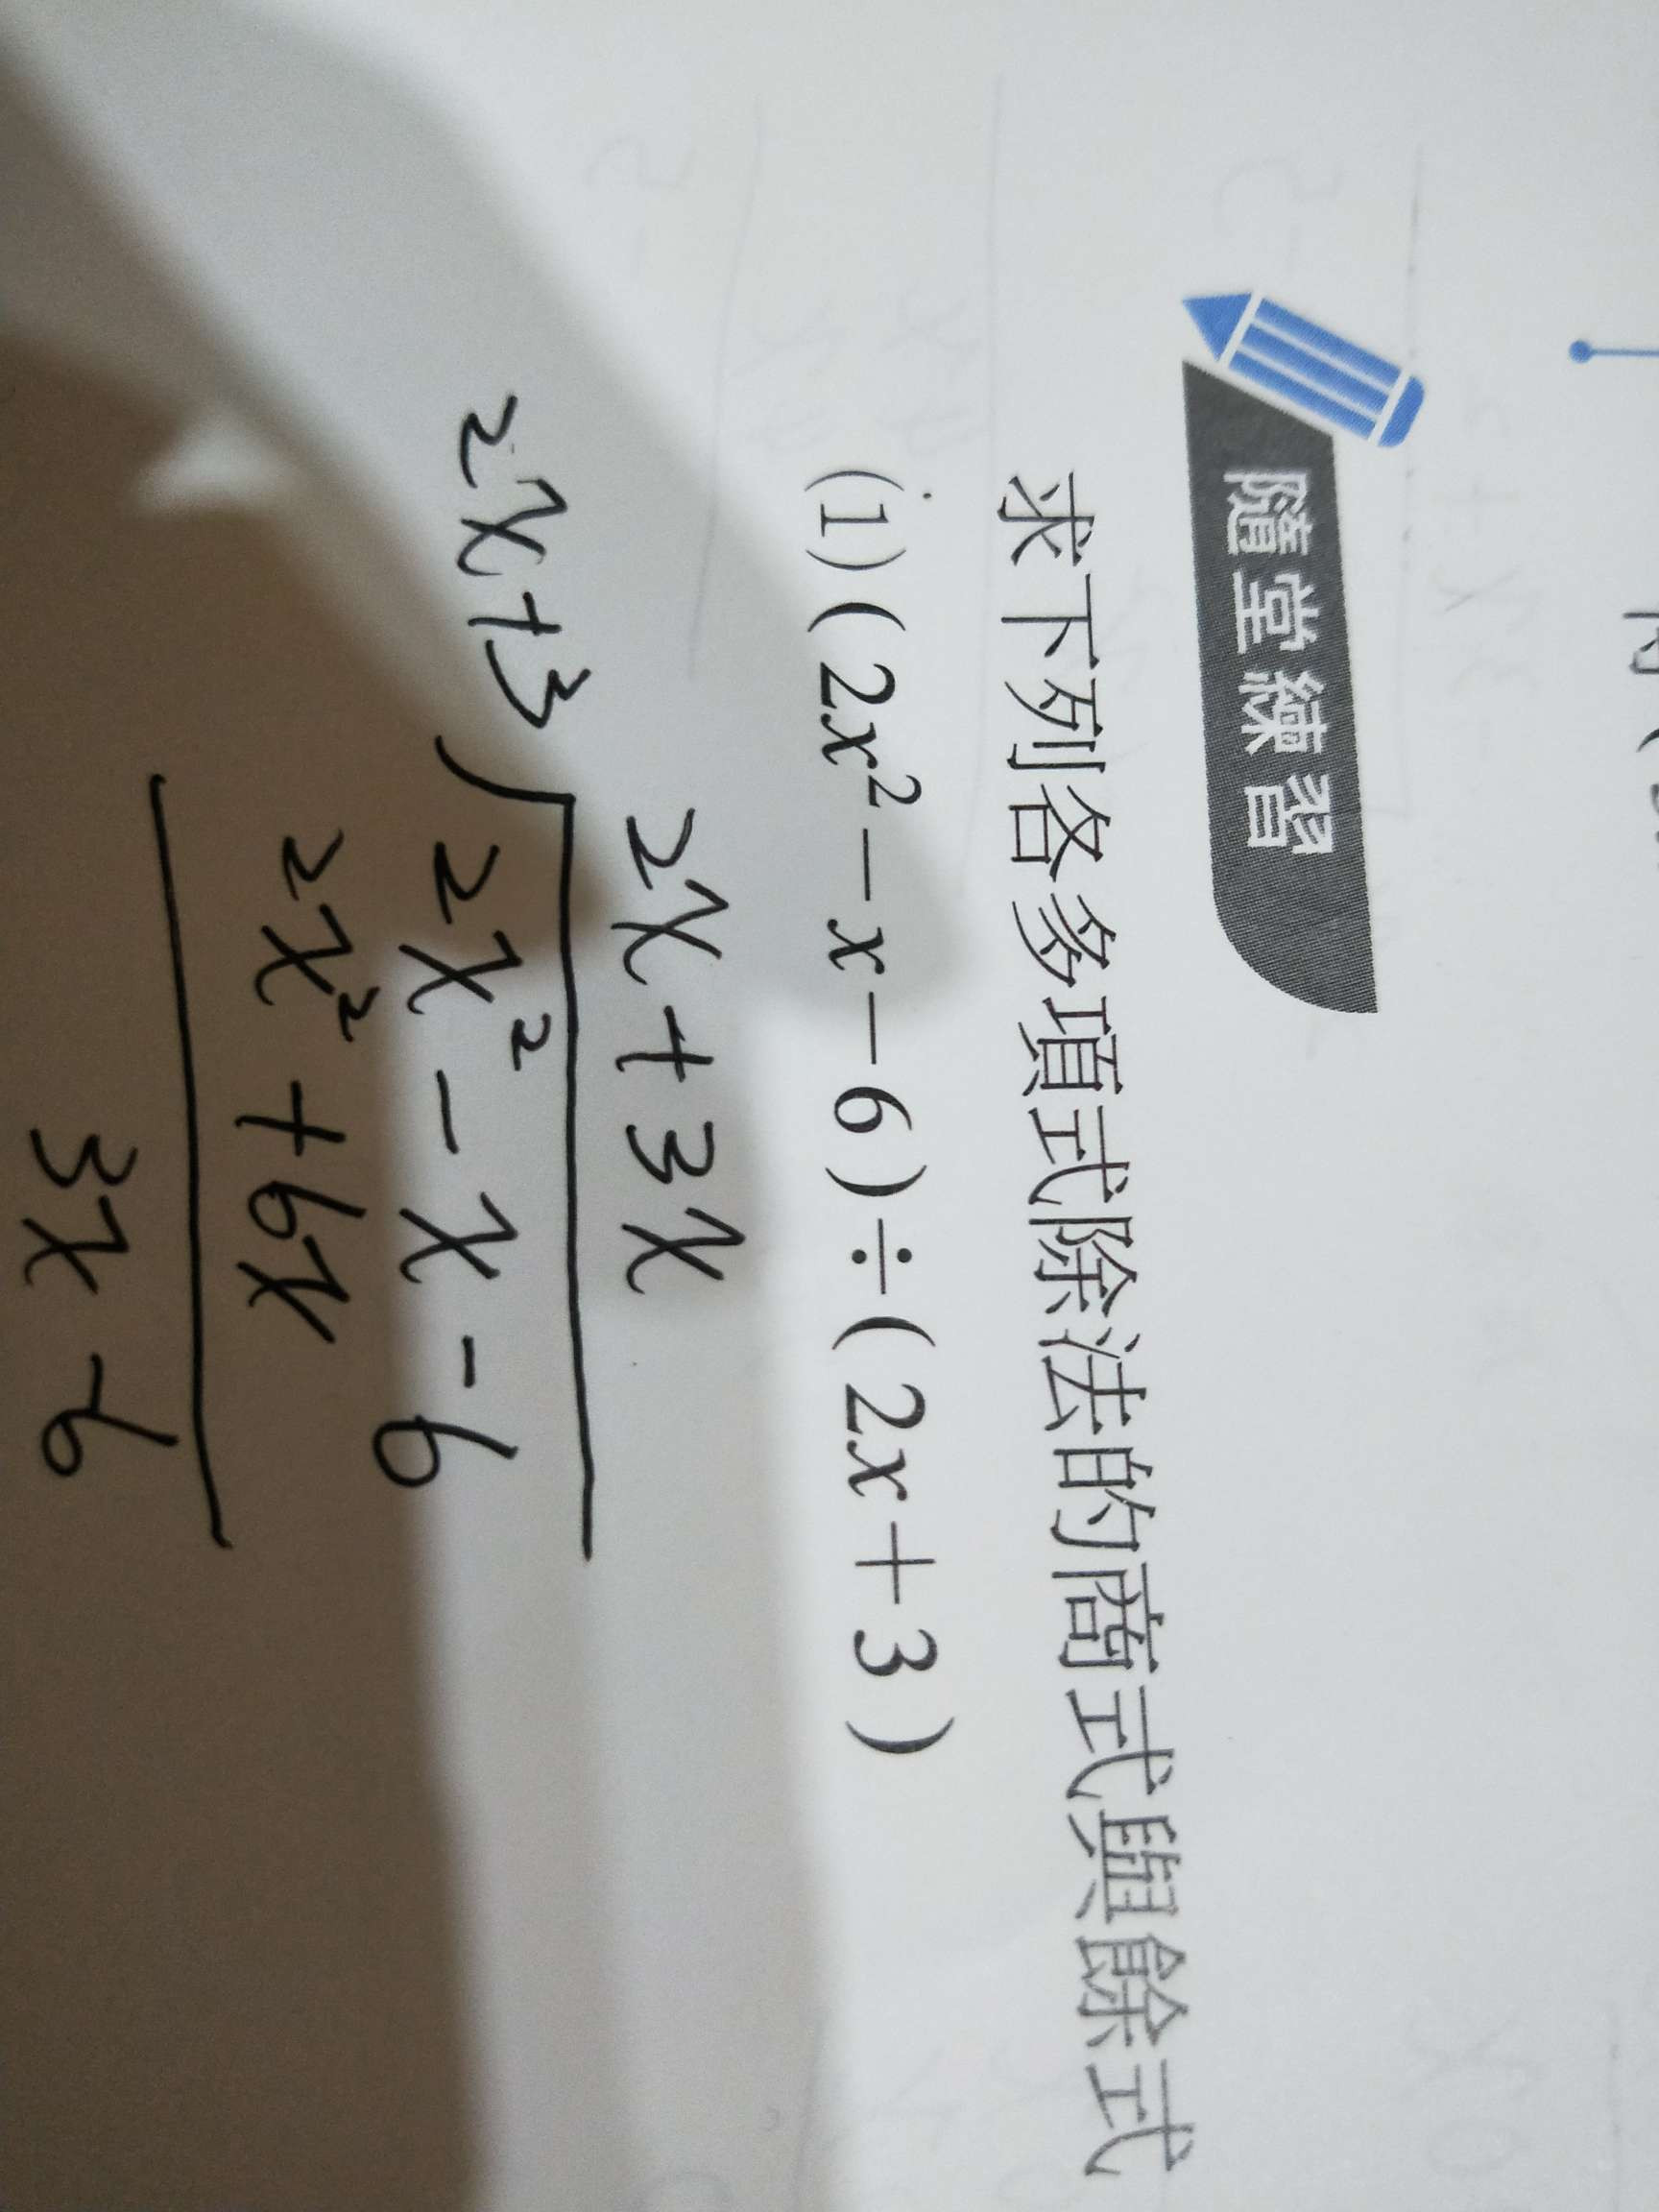 隨堂練習
求下列各多項式除法的商式與餘式
(1) (2x²－x－6)÷(2x＋3)
2x+3x
2x+3)2x²-x-6
2x²+6x
3x-6